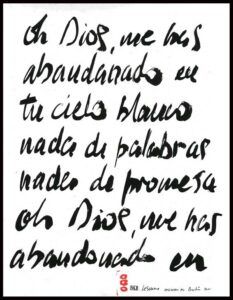 oh Dios, me has
abandonado en
tu cielo blanco
nada de palabras
nada de promesa
oh Dios, me has
abandonado en